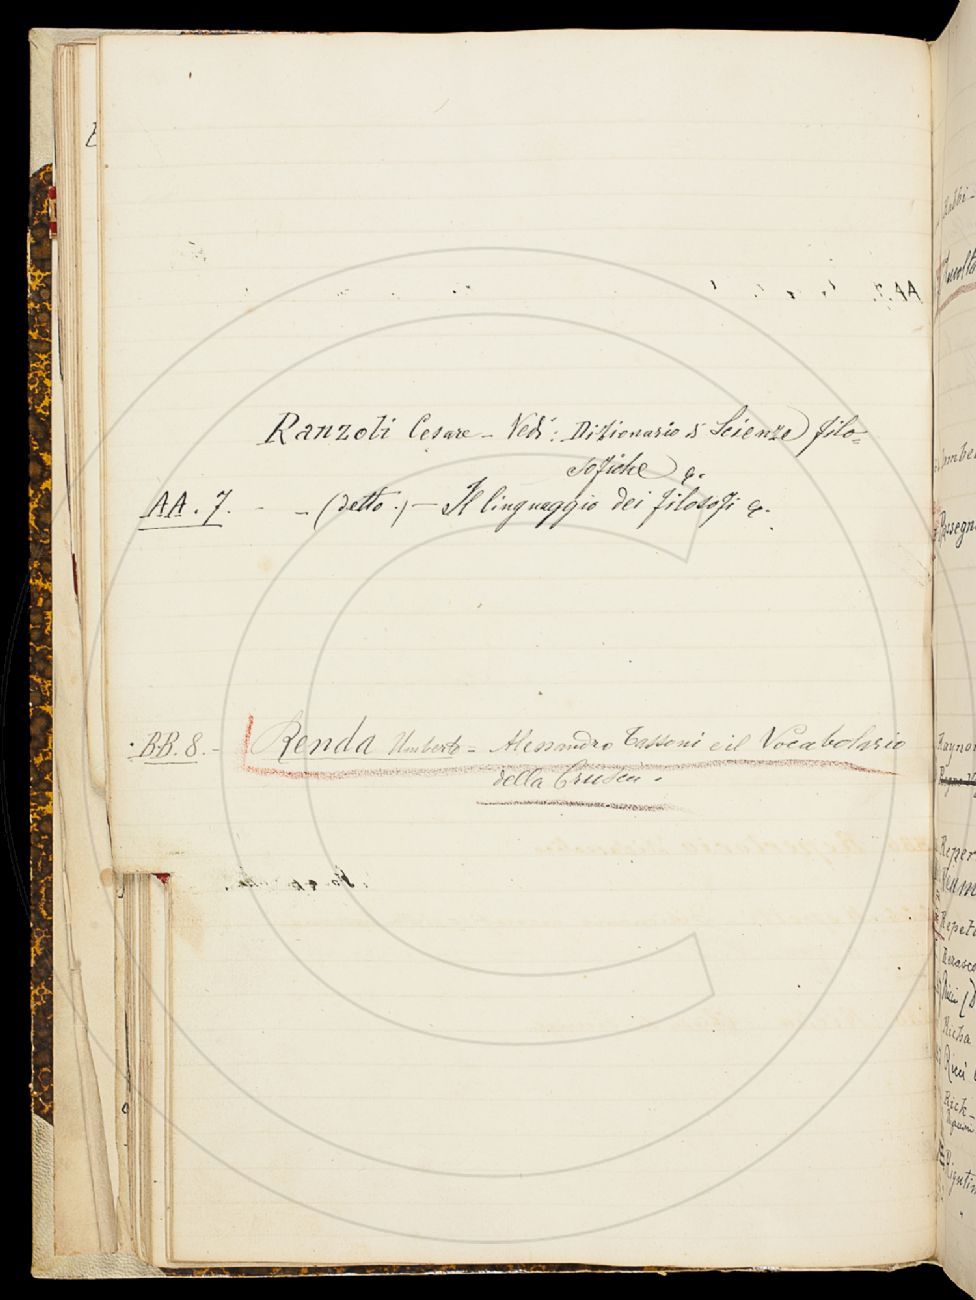 Ranzoli Cesare - Vedi: Dizionario di Scienze filo=
sofiche &.
AA. 7. - - (detto.) - Il linguaggio dei filosofi &.
BB. 8. - Renda Umberto = Alessandro Tassoni e il Vocabolario
della Crusca.
AA.
Rabbi-
Rassegn
Raynor
Reper
Repeti
Ricci (D
Richa
Ricci
Rick-
Rigutin